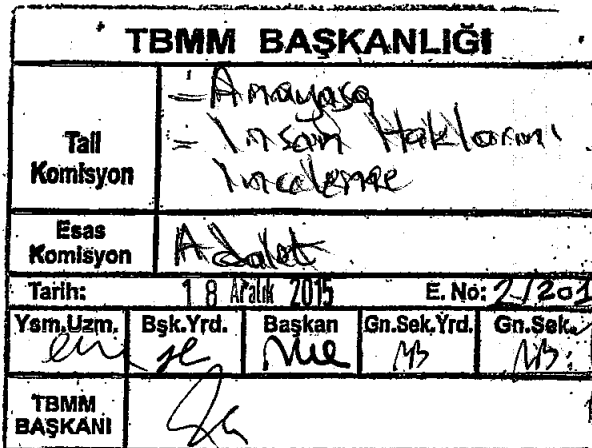 TBMM BAŞKANLIĞI
Tali Komisyon
- Anayasa
- İnsan Haklarını
İnceleme
Esas Komisyon
Adalet
Tarih: 18 Aralık 2015 E. No: 2/201
Ysm.Uzm. Bşk.Yrd. Başkan Gn.Sek.Yrd. Gn.Sek.
TBMM BAŞKANI